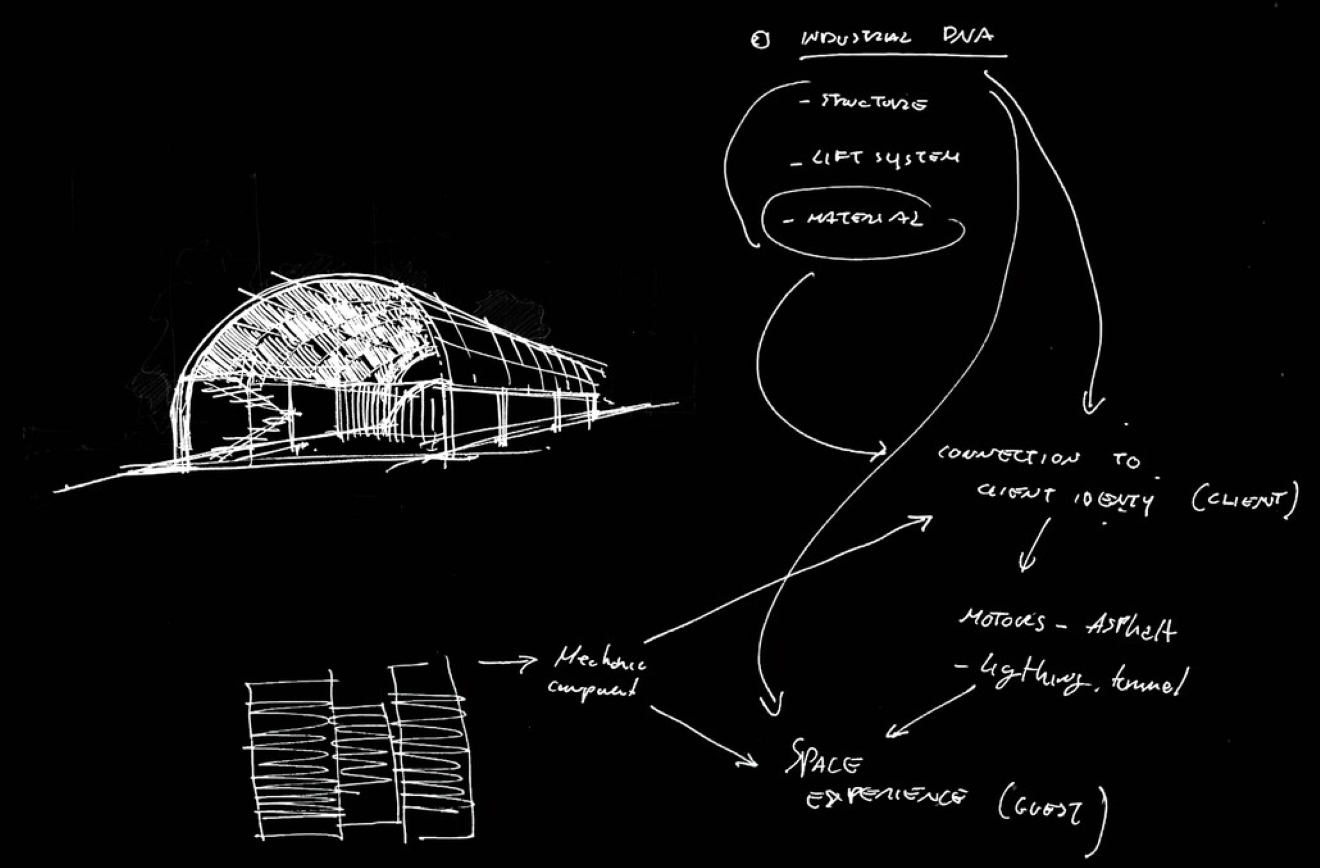 INDUSTRIAL DNA
- STRUCTURE
- LIFT SYSTEM
- MATERIAL
CONNECTION TO
CLIENT IDENTY (CLIENT)
MOTORS - ASPhalt
- lighthing. tunnel
Mechanic
component
SPACE
EXPERIENCE (GUEST)